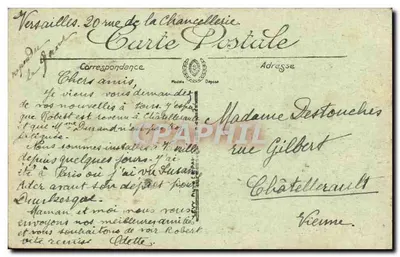 Versailles. 20 rue de la Chancellerie
Carte Postale
Correspondance
Adresse
Chers amis,
Je viens vous demander
de vos nouvelles à tous. J'espère
que Robert est revenu à Châtellerault
et que Mme Durand
Nous sommes installés à V.
depuis quelques jours. J'ai
été à Paris où j'ai vu
avant son départ pour
Dunkerque.
Maman et moi nous vous
envoyons nos meilleures amitiés
et vous souhaitons de voir Robert
vite remis. Odette
Madame Destouches
rue Gilbert
Châtellerault
Vienne.
CPAPHIL.com